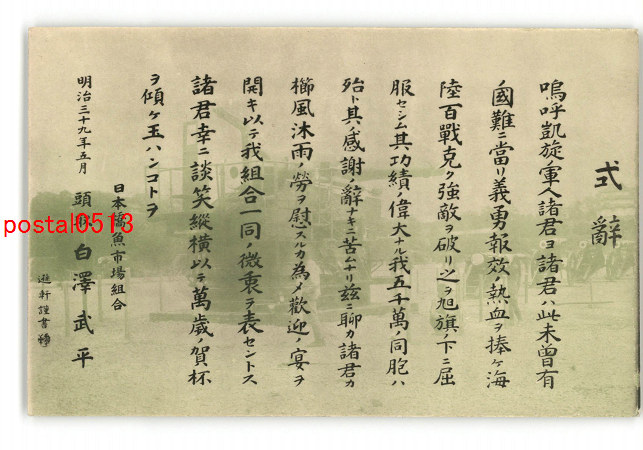 式辭
嗚呼凱旋軍人諸君ヨ諸君ハ此未曾有
國難ニ當リ義勇報效ノ熱血ヲ捧ケ海
陸百戰克ク強敵ヲ破リ之ヲ旭旗ノ下ニ屈
服セシム其功績ノ偉大ナル我五千萬ノ同胞ハ
殆ト其ノ感謝ノ辭ナキニ苦ムナリ茲ニ聊カ諸君カ
櫛風沐雨ノ勞ヲ慰スルカ為メ歡迎ノ宴ヲ
開キ以テ我組合一同ノ微衷ヲ表セントス
諸君幸ニ談笑縱横以テ萬歲ノ賀杯
ヲ傾ケ玉ハンコトヲ
明治三十九年五月
日本橋魚市場組合
頭 白澤武平
謹書
postal0513